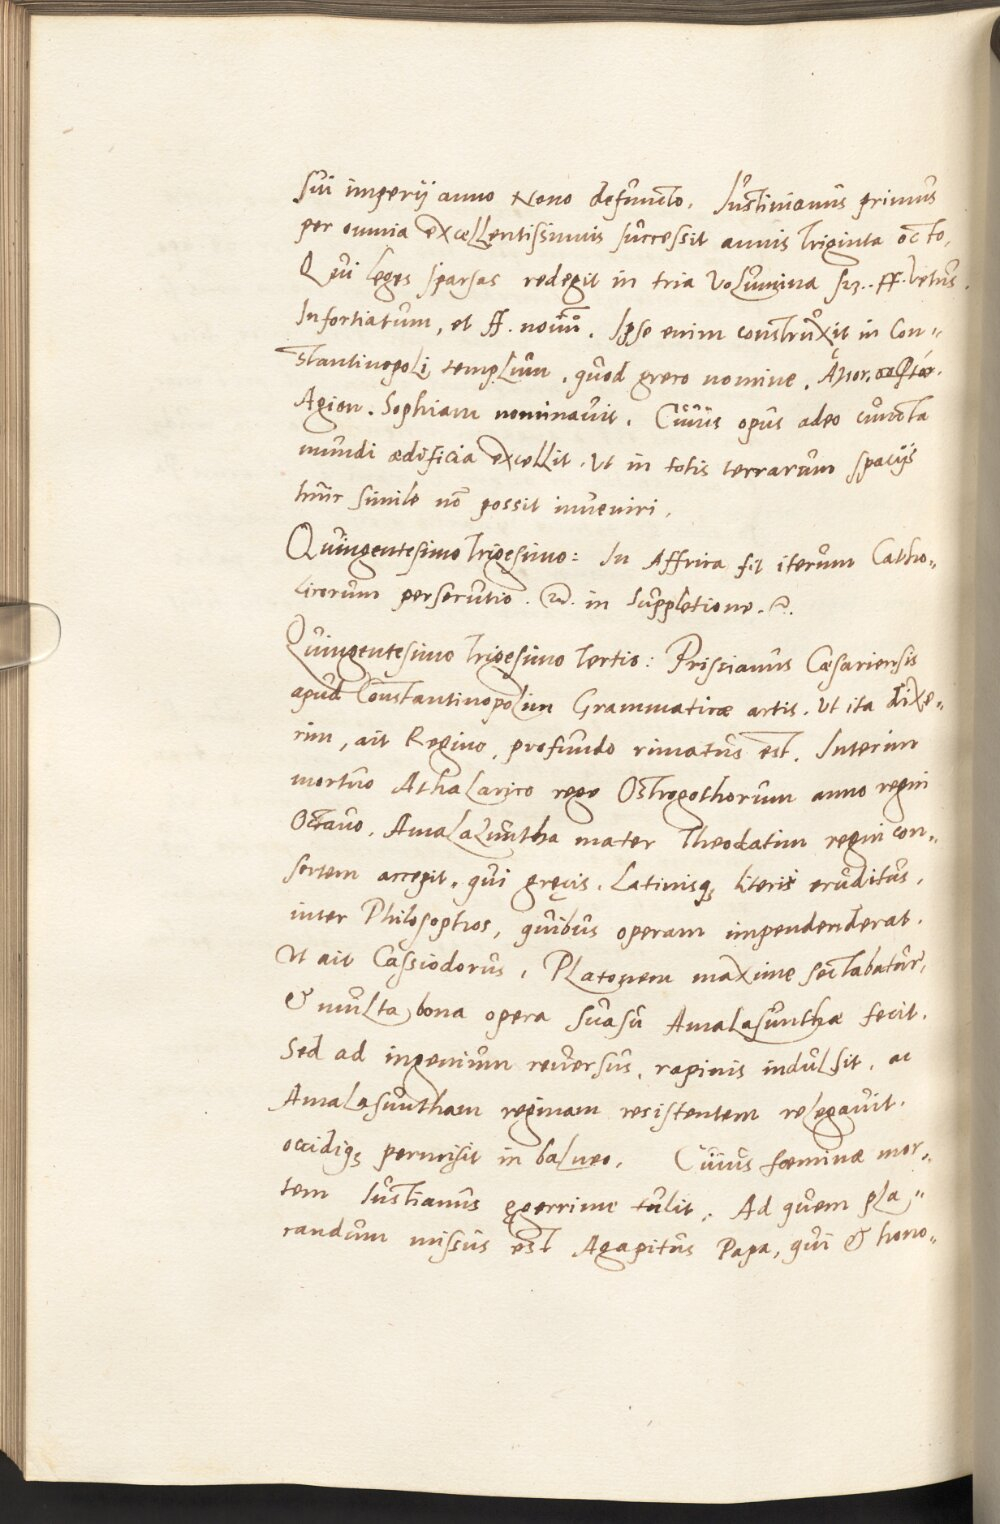 sui imperij anno Nono defuncto. Iustinianus primus
per omnia excellentissimus successit annis Triginta octo,
Qui leges sparsas redegit in tria Volumina sz. ff. Vetus.
Infortiatum, et ff. nouum. Ipse enim construxit in Con„
stantinopoli templum, quod greco nomine,
Agion. Sophiam nominauit. Cuius opus adeo cuncta
mundi ædificia excellit. Ut in totis terrarum spacijs
huic simile nõ possit inueniri.
Quingentesimo Trigesimo: In Affrica fit iterum Catho„
licorum persecutio. in Suppletione.
Quingentesimo Trigesimo Tertio: Priscianus Cæsariensis
apud Constantinopolim Grammaticæ artis. Ut ita dixe„
rim, ait Regino, profundo rimatus est. Interim
mortuo Athalarico rege Ostrogothorum anno regni
Octauo. Amalasuntha mater Theodatum regni con„
sortem accepit, qui gręcis. Latinisq; literis eruditus,
inter Philosophos, quibus operam impendenderat.
Ut ait Cassiodorus, Platonem maxime sectabatur,
& multa bona opera suasu Amalasunthæ fecit.
Sed ad ingenium reuersus, rapinis indulsit, ac
Amalasuntham reginam resistentem relegauit.
occidiq; permisit in balneo. Cuius fœminæ mor„
tem Iustianus ęgerrime tulit. Ad quem pla„
randum missus est Agapitus Papa, qui & hono„